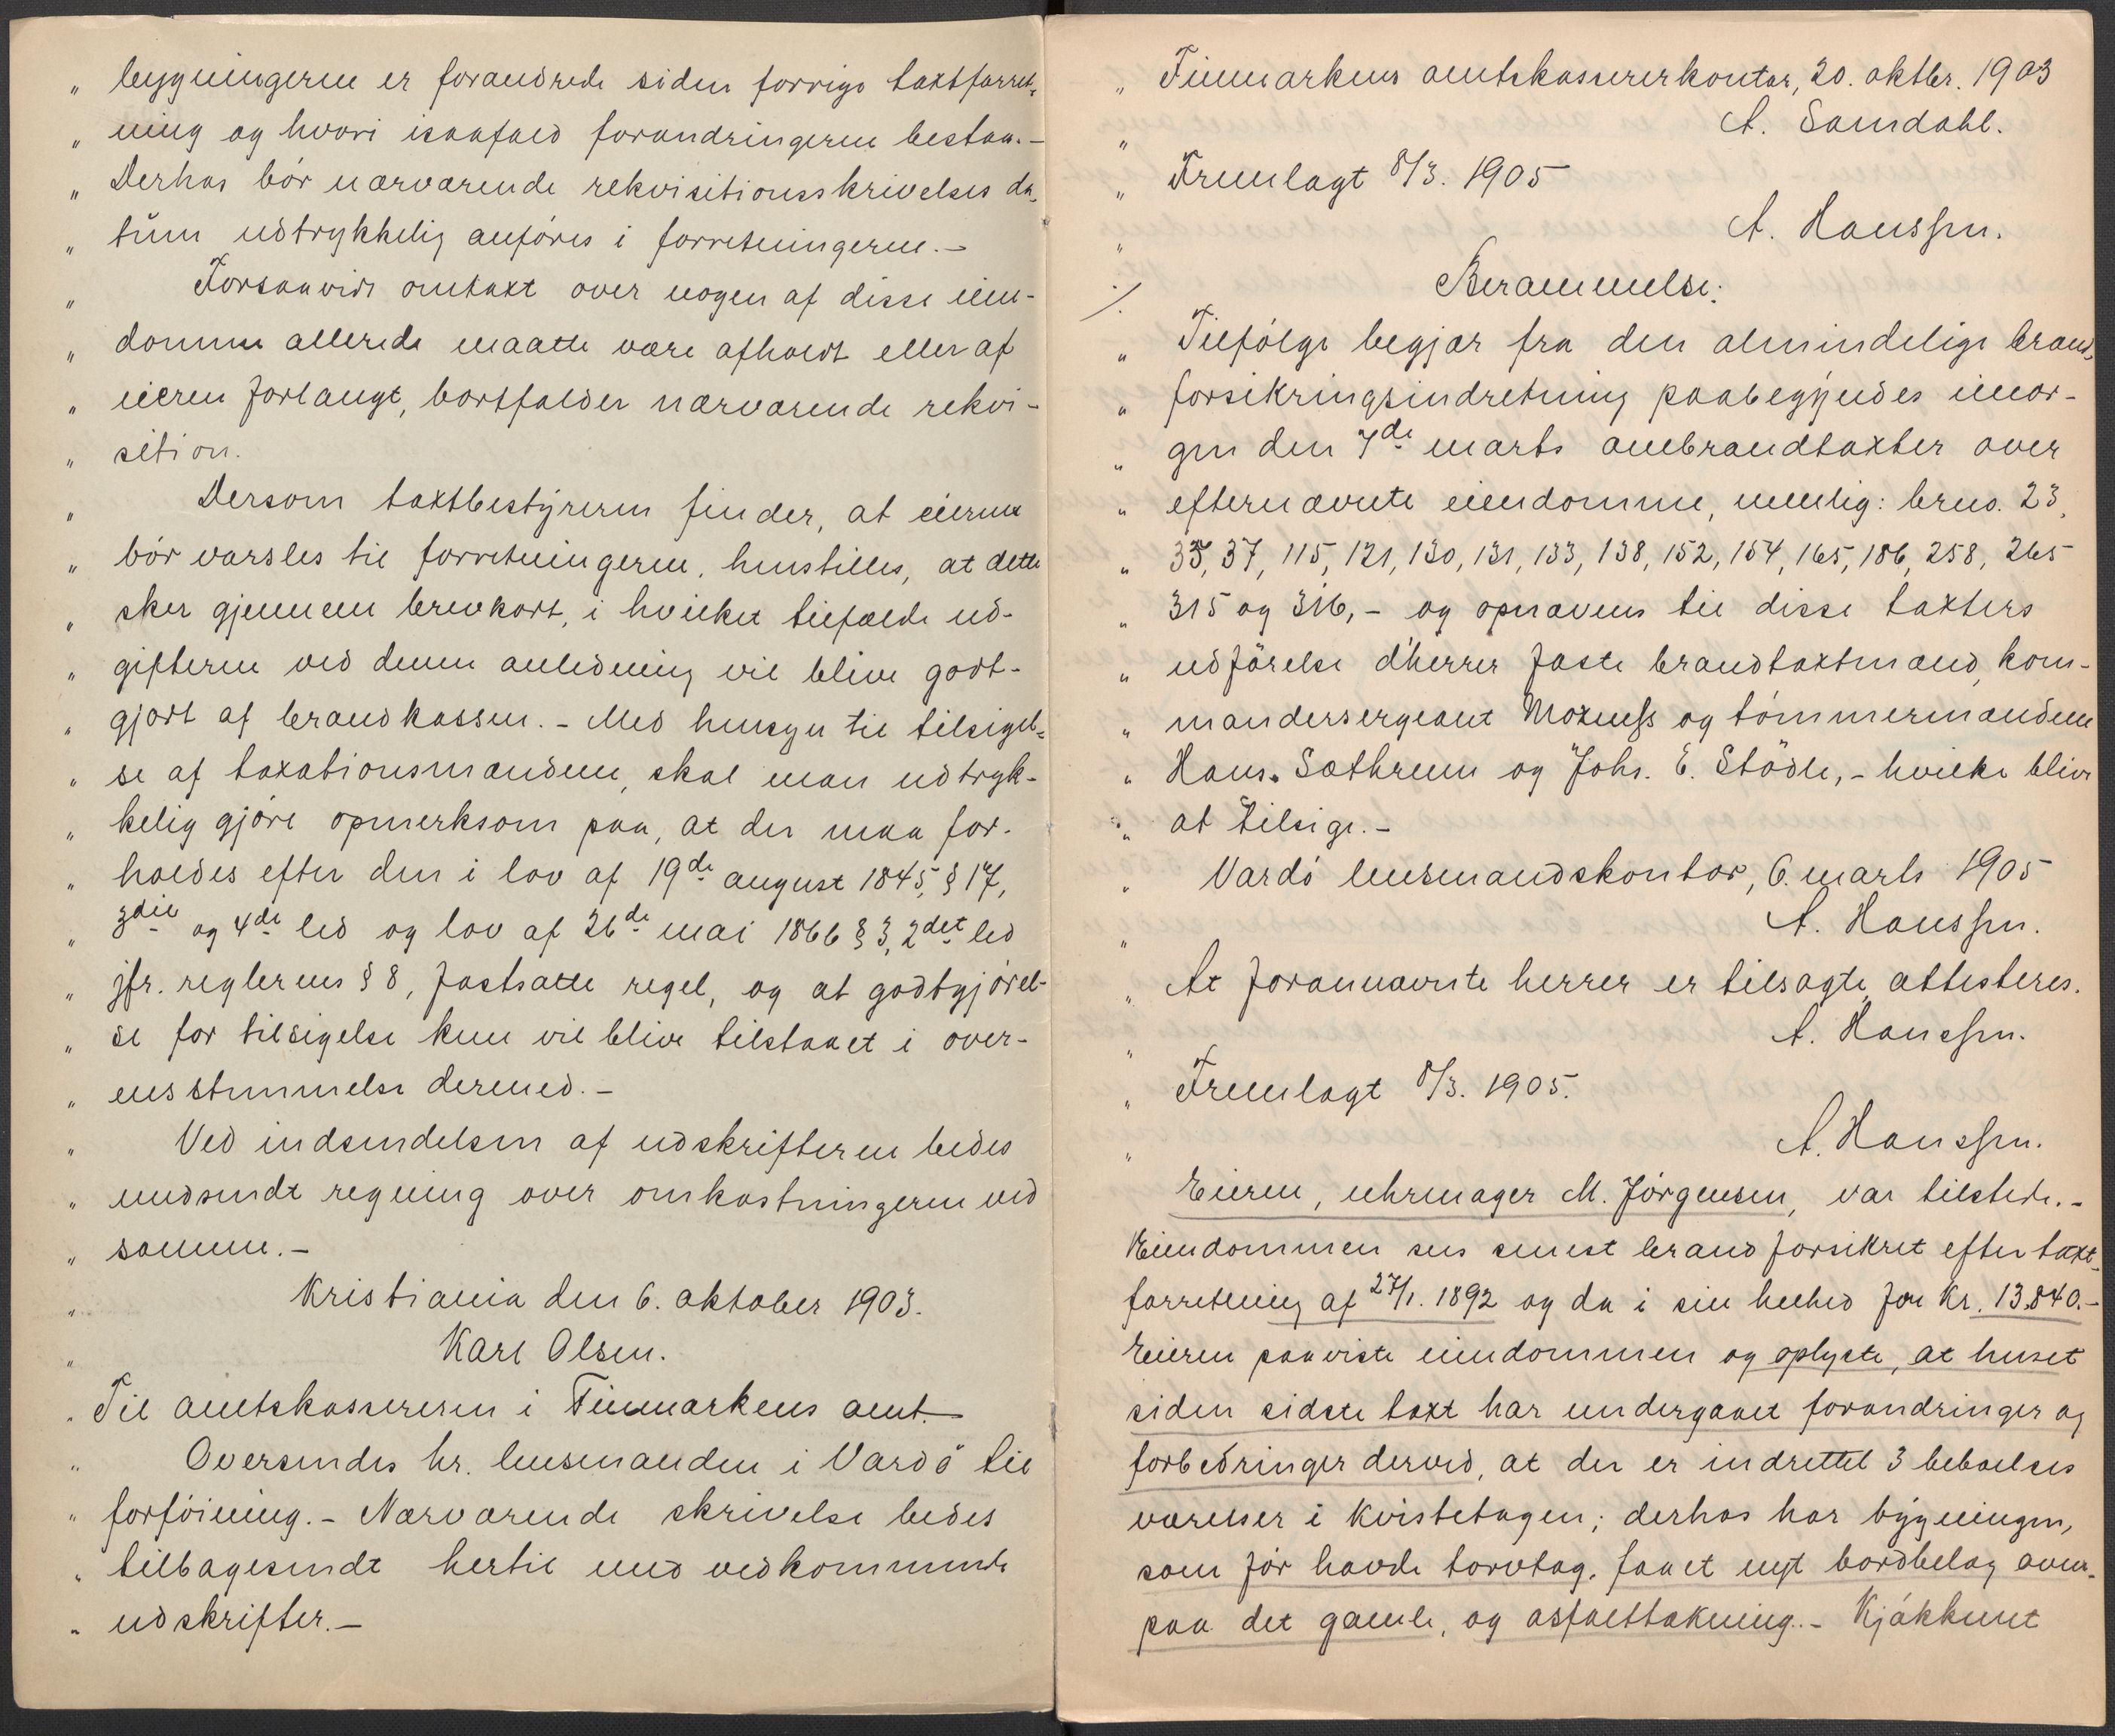 „ bygningerne er forandrede siden forrige taxtforret„
„ ning og hvori isaafald forandringerne bestaa.—
„ Derhos bør nærværende rekvisitionsskrivelses da„
„ tŭm udtrykkelig anføres i forretningerne.—
„ Forsaavidt omtaxt over nogen af disse eien-
„ domme allerede maatte være afholdt eller af
„ eieren forlangt, bortfalder nærværende rekvi-
„ sition.
„ Dersom taxtbestyreren finder, at eierne
„ bør varsles til forretningerne, henstilles, at dette
„ sker gjennem brevkort, i hvilket tilfælde ud-
„ gifterne ved denne anledning vil blive godt-
„ gjort af brandkassen.- Med hensyn til tilsigel„
„ se af taxationsmændene, skal man udtryk-
„ kelig gjøre opmerksom paa, at der maa for-
„ holdes efter den i lov af 19de august 1845, § 17,
„ 3die og 4de led og lov af 26de mai 1866 § 3, 2det led
„ jfr. reglernes § 8, fastsatte regel, og at godtgjørel-
„ se for tilsigelse kun vil blive tilstaaet i over-
„ ensstemmelse dermed.-
„ Ved indsendelsen af udskrifterne bedes
„ medsendt regning over omkostningerne ved
„ samme.-
„ Kristiania den 6. oktober 1903.
„ Karl Olsen.
„ Til amtskassereren i Finmarkens amt.
„ Oversendes hr. lensmanden i Vardø til
„ forføining.- Nærværende skrivelse bedes
„ tilbagesendt hertil med vedkommende
„ udskrifter.-
„ Finmarkens amtskassererkontor, 20. oktbr. 1903
„ A. Samdahl.
„ Fremlagt 8/3. 1905
„ A. Hanssen.
·/. Berammelse:
„ Tilfølge begjær fra den almindelige brand„
„ forsikringsindretning paabegyndes imor-
„ gen den 7de marts ombrandtaxter over
„ efternævnte eiendomme, nemlig: brno. 23,
„ 35, 37, 115, 121, 130, 131, 133, 138, 152, 154, 165, 186, 258, 265
„ 315 og 316,- og opnævnes til disse taxters
„ udførelse d'herrer faste brandtaxtmand, kom-
„ mandersergeant Moxness og tømmermændene
„ Hans. Sæthrenn og Johs. E. Stödle,- hvilke blive
„ at tilsige.-
„ Vardø lensmandskontor, 6. marts 1905
„ A. Hanssen.
„ At forannævnte herrer er tilsagte, attesteres.
„ A. Hanssen.
„ Fremlagt 8/3. 1905.
„ A. Hanssen.
Eieren, uhrmager M. Jørgensen, var tilstede.-
Eiendommen sees senest brandforsikret efter taxt„
forretning af 27/1. 1892 og da i sin helhed for Kr. 13,840.-
Eieren paaviste eiendommen og oplyste, at huset
siden sidste taxt har undergaaet forandringer og
forbedringer derved, at der er indrettet 3 beboelses
værelser i kvistetagen; derhos har bygningen,
som før havde torvtag, faaet nyt bordbelag oven„
paa det gamle, og asfalttækning.- Kjøkkenet